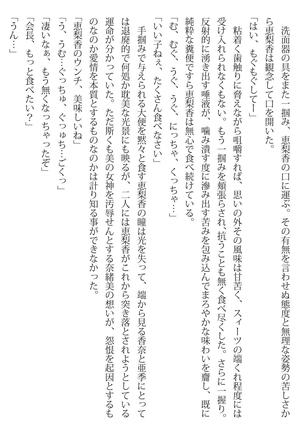 洗面器の具をまた一掴み、恵梨香の口に運ぶ。その有無を言わせぬ態度と無理な姿勢の苦しさか
ら恵梨香は観念して口を開いた。
「はい、もぐもぐして〜」
粘着く歯触りに脅えながら咀嚼すれば、思いの外その風味は甘苦く、スィーツの端くれ程度には
受け入れられなくもない。もう一掴みを頬張らされ、抗うことも無く食べ尽くす。さらに一握り。
反射的に湧き出す唾液が、噛み潰す度に滲み出す苦みを包み込んでまろやかな味わいを齎し、既に
純粋な糞便ですら恵梨香は無心で食べ続けている。
「む、むく、うぐ、うぐ、にっちゃ、くっちゃ…」
「いい子ねぇ、たくさん食べなさい」
手掴みで与えられる大便を黙々と食す恵梨香の瞳は光を失って、端から見る香奈と亜季にとって
は退廃的で何処か耽美な光景にも映るが、二人には恵梨香がこれから突き落とされようとしている
運命が分かっていた。ただ斯くも美の女神を汚辱せんとする奈緒美の想いが、怨恨を起因とするも
のなのか愛情を本質とするものなのかは計り知る事ができなかった。
「恵梨香のウンチ、美味しいね」
「う、うむ…ぐっちゅ、ぐゅっち…ごくっ」
「凄いなぁ、もう無くなっちゃったぞ」
「会長、もっと食べたい？」
「うん…」